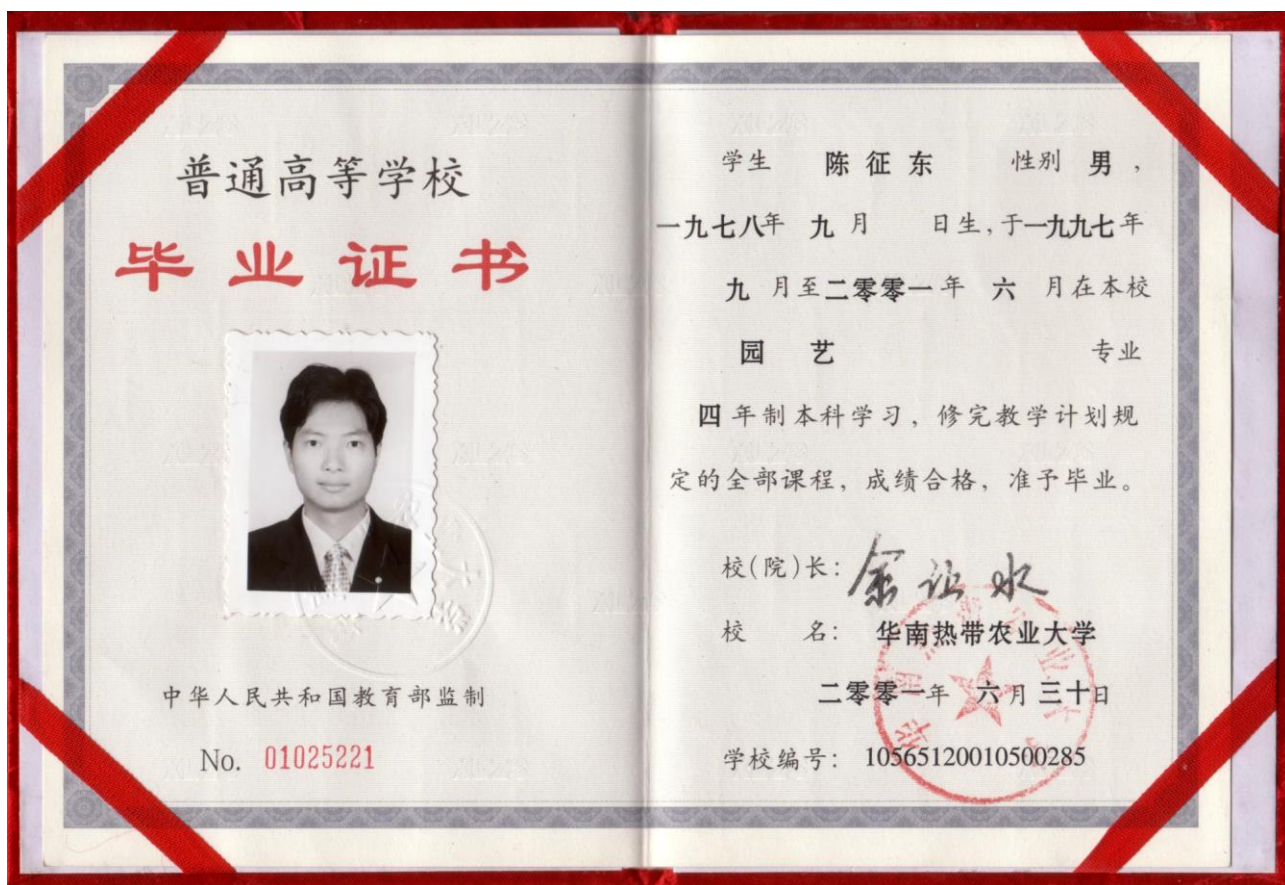 普通高等学校
毕业证书
中华人民共和国教育部监制
No. 01025221
学生 陈征东 性别 男,
一九七八年 九月 日生,于一九九七年
九 月至二零零一年 六 月在本校
园 艺 专业
四年制本科学习,修完教学计划规
定的全部课程,成绩合格,准予毕业。
校(院)长: 余让水
校 名: 华南热带农业大学
二零零一年 六月三十日
学校编号: 105651200105000285